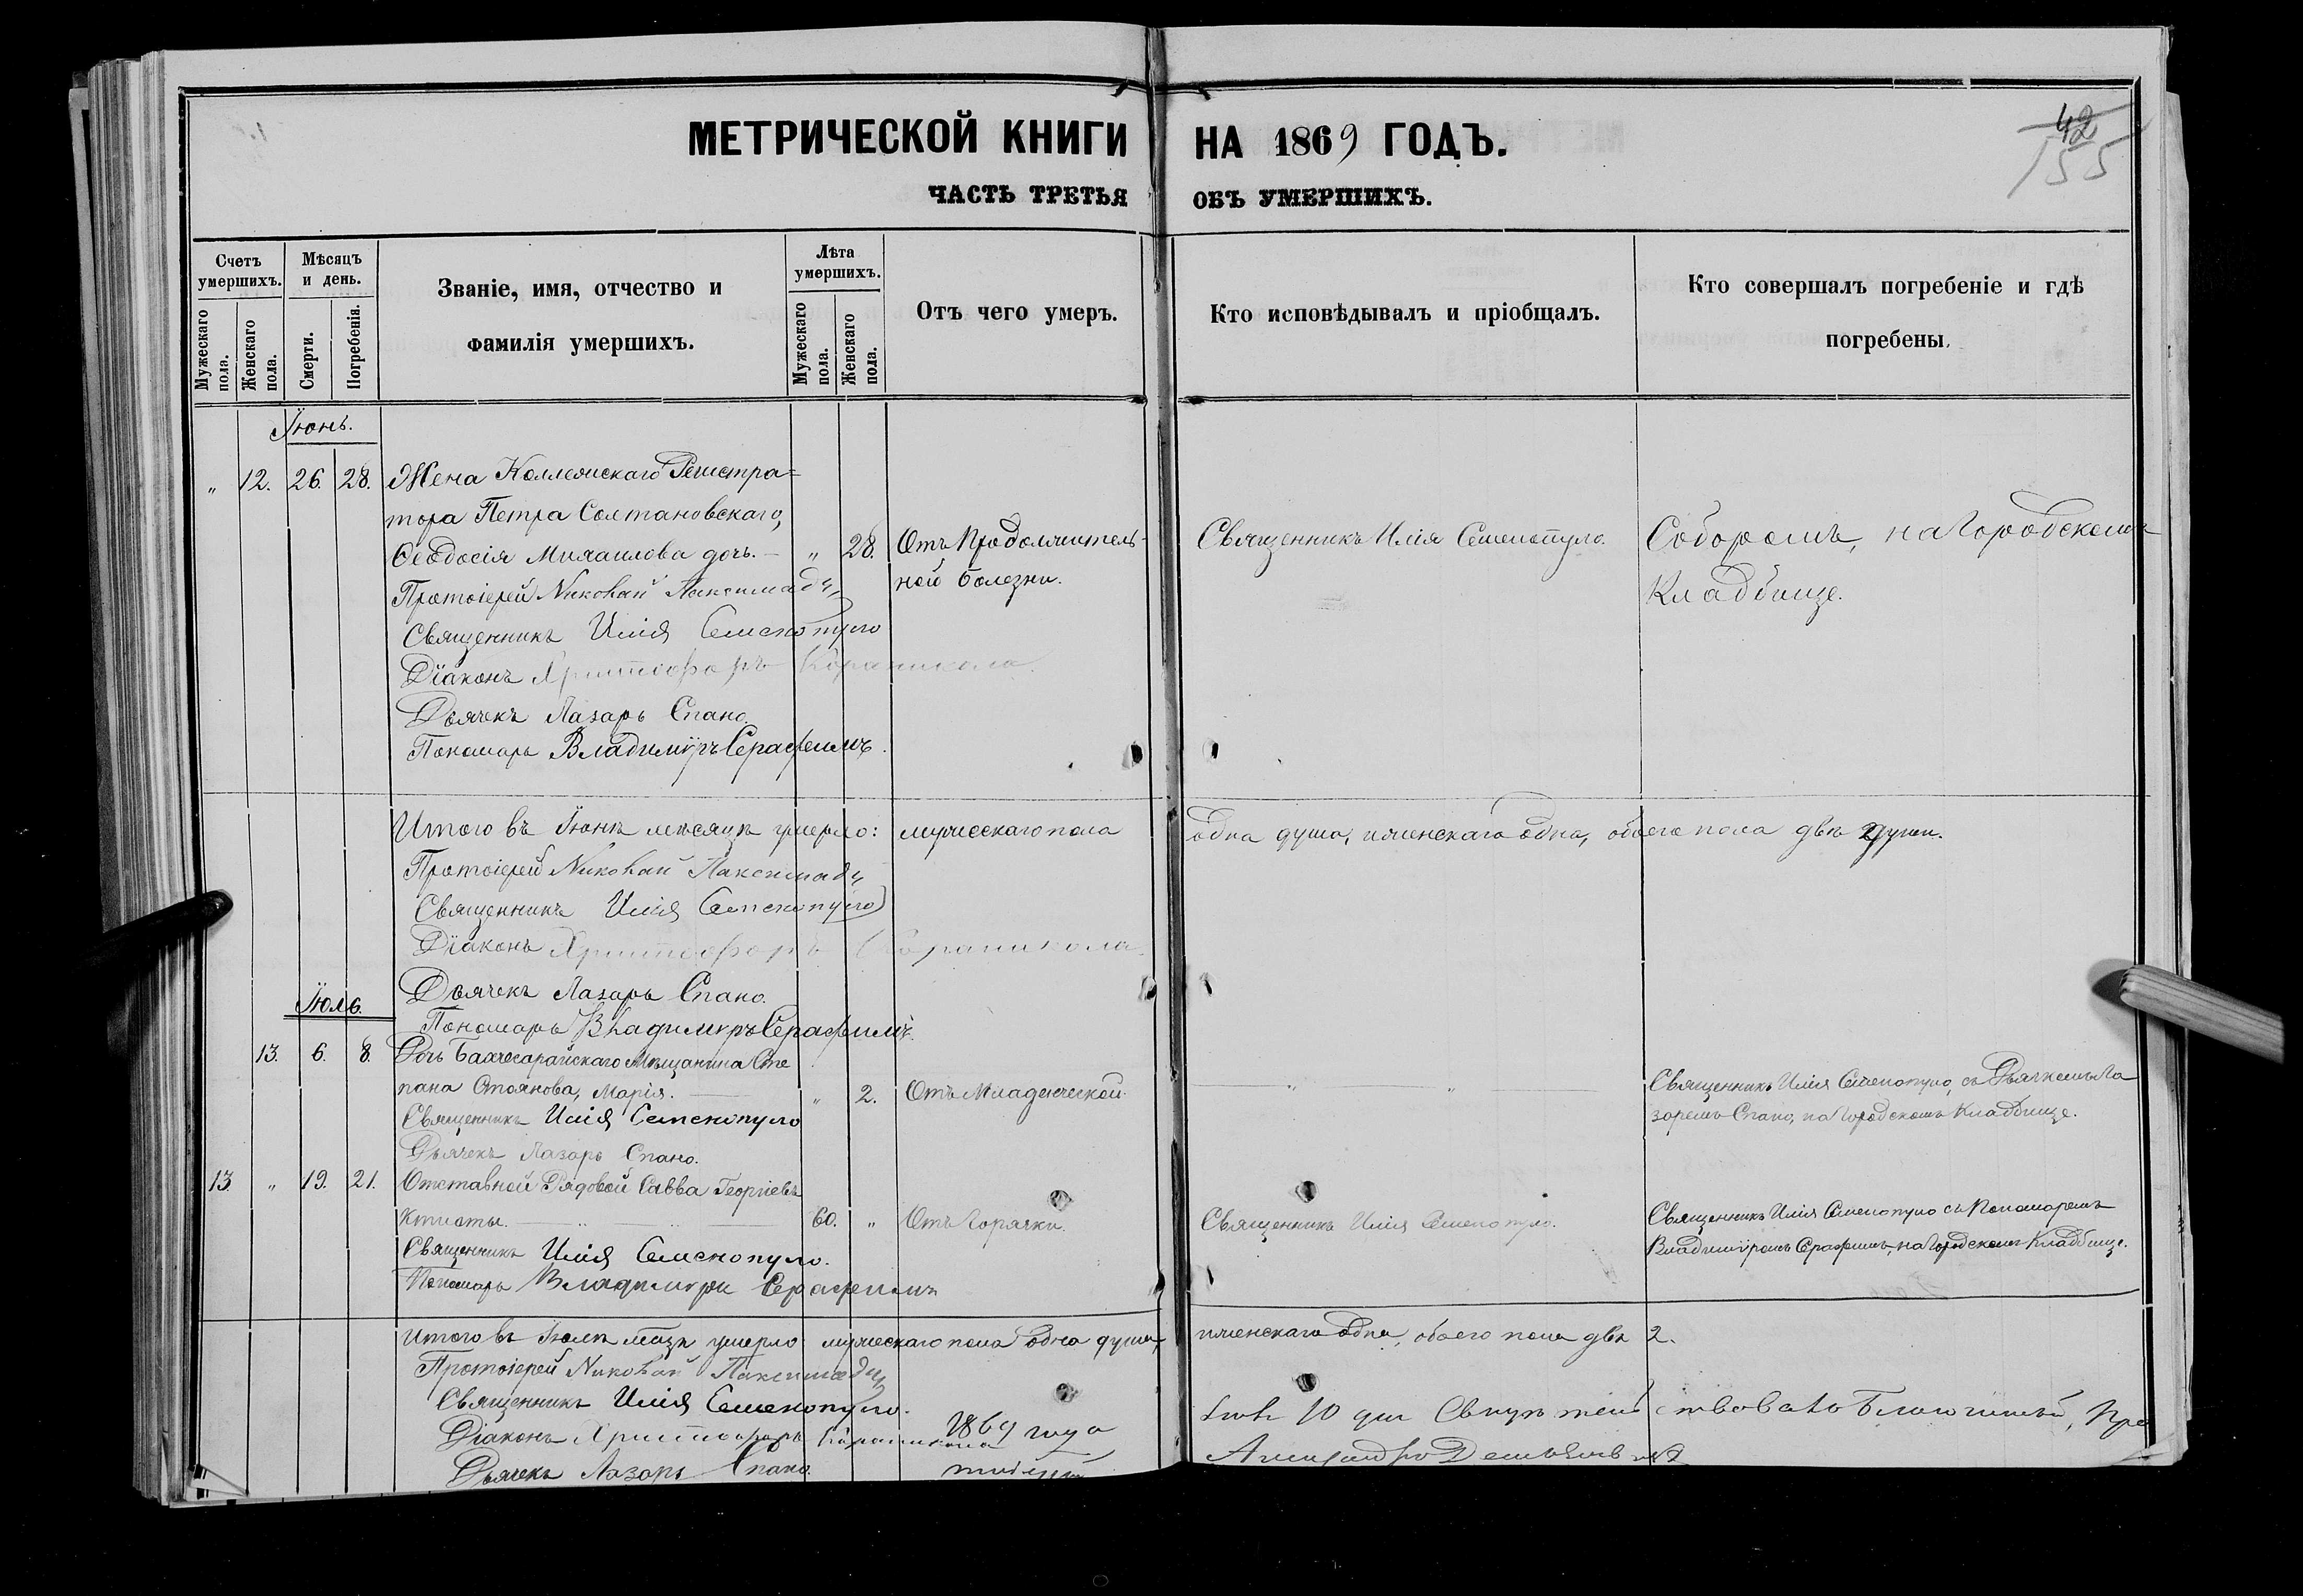 МЕТРИЧЕСКОЙ КНИГИ НА 1869 ГОДЪ.
42
155
ЧАСТЬ ТРЕТЬЯ ОБЪ УМЕРШИХЪ.
Счетъ умершихъ.
Мужескаго пола.
Женскаго пола.
Мѣсяцъ и день.
Смерти.
Погребенія.
Званіе, имя, отчество и
фамилія умершихъ.
Лѣта умершихъ.
Мужескаго пола.
Женскаго пола.
Отъ чего умеръ.
Кто исповѣдывалъ и пріобщалъ.
Кто совершалъ погребеніе и гдѣ
погребены.
Іюнь.
" 12. 26. 28. Жена Коллежскаго Регистра=
тора Петра Солтановскаго,
Ѳеодосія Михаилова дочь. — " 28. Отъ Продолжитель- Священникъ Илія Семенопуло. Соборомъ, на Городскомъ
ной болезни. Кладбище.
Протоіерей Николай Паксимади
Священникъ Илія Семенопуло
Діаконъ Христофоръ Караникола.
Дьячекъ Лазарь Спано.
Пономарь Владиміръ Серафимъ.
Итого въ Іюнѣ мѣсяцѣ умерло: мужескаго пола одна душа, женскаго одна, обоего пола двѣ 2 души.
Протоіерей Николай Паксимади
Священникъ Илія Семенопуло
Діаконъ Христофоръ Караникола.
Дьячекъ Лазарь Спано.
Пономарь Владимиръ Серафимъ.
Іюль.
13. 6. 8. Дочь Бахчесарайскаго Мѣщанина Сте
пана Стоянова, Марія. — " 2. Отъ Младенческой. " " — Священникъ Илія Семенопуло, съ Дьячкомъ Ла
заремъ Спано, на Городскомъ Кладбище.
Священникъ Илія Семенопуло
Дьячекъ Лазарь Спано.
13. " 19. 21. Отставной Рядовой Савва Георгіевъ
60. " Отъ Горячки. Священникъ Илія Семенопуло. Священникъ Илія Семенопуло съ Пономаремъ
Владиміромъ Серафимъ, на Городскомъ Кладбище.
Священникъ Илія Семенопуло.
Пономарь Владимиръ Серафимъ
Итого въ Іюлѣ мѣцѣ умерло мужескаго пола одна душа, женскаго одна, обоего пола двѣ 2.
Протоіерей Николай Паксимади
Священникъ Илія Семенопуло.
Діаконъ Христофоръ Караникола
Дьячекъ Лазарь Спано.
1869 года
10 дня Благочинный, Про